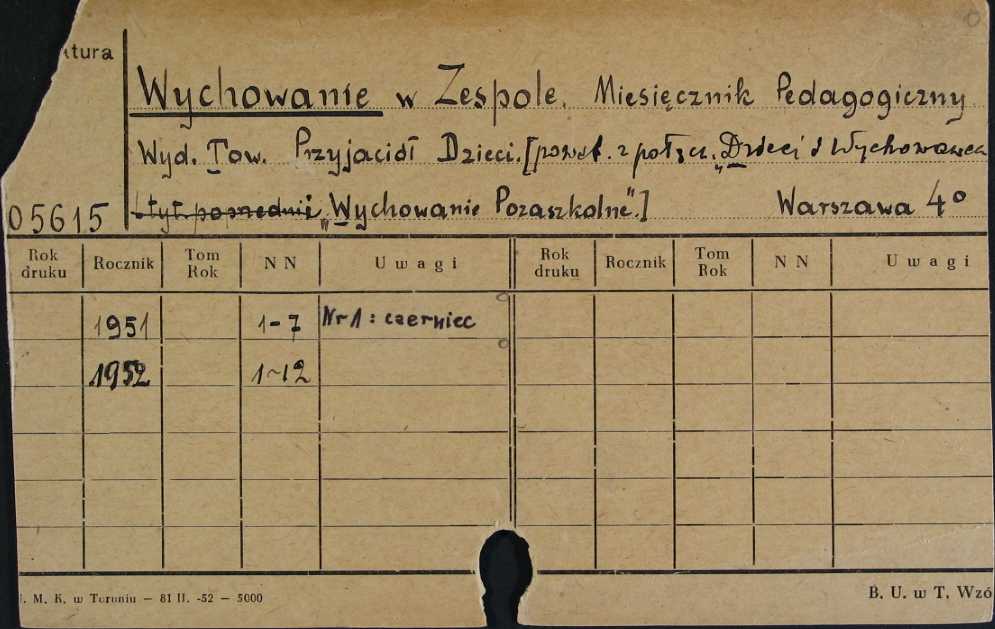 tura
Wychowanie w Zespole. Miesięcznik Pedagogiczny
Wyd. Tow. Przyjaciół Dzieci. [powst. z połącz. „Dzieci i Wychowawca
05615 tyt. poprzednii „Wychowanie Pozaszkolne".] Warszawa 4°
Rok druku Rocznik Tom Rok N N Uwagi Rok druku Rocznik Tom Rok N N Uwagi
1951 1-7 Nr 1 : czerwiec
1952 1-12
. M. K. w Toruniu — 81 II. -52 — 5000 B. U. w T. Wzó